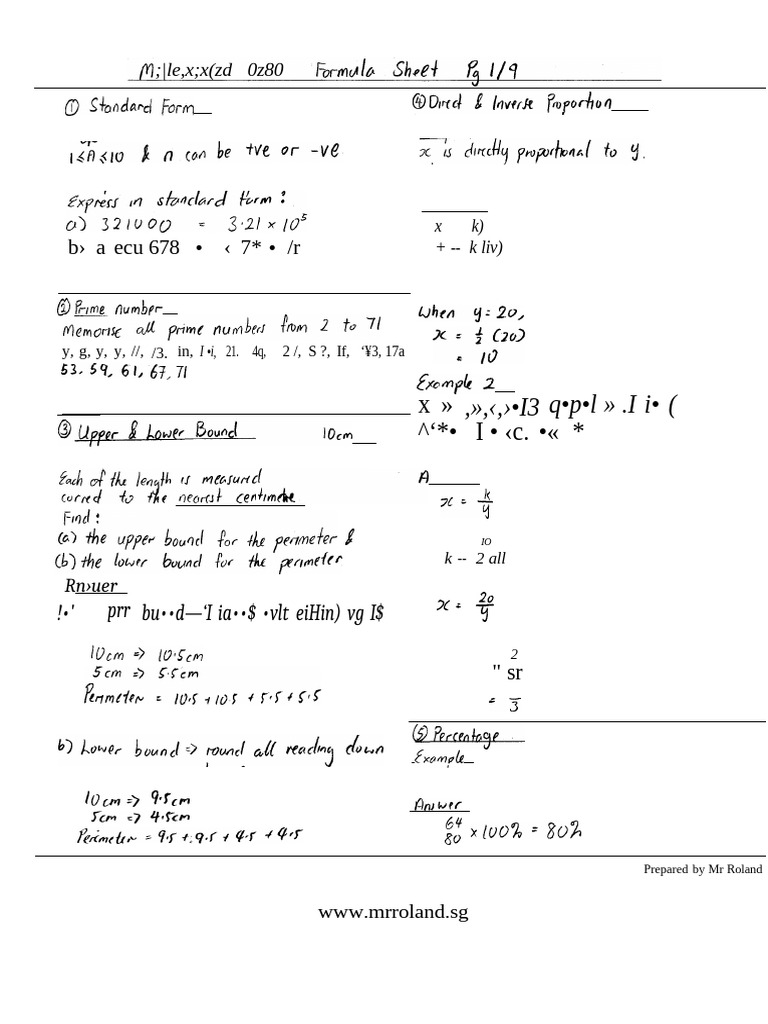 M;|le,x;x(zd 0z80 Formula Sheet Pg 1/9
① Standard Form
1≤A≤10 & n can be +ve or -ve
Express in standard form:
a) 321000 = 3.21 × 10⁵
b› a ecu 678 • ‹ 7* • /r
② Prime number
Memorise all prime numbers from 2 to 71
y, g, y, y, //, /3. in, I•i, 21. 4q, 2 /, S ?, If, ‘¥3, 17a
53, 59, 61, 67, 71
③ Upper & Lower Bound 10cm
Each of the length is measured
corred to the nearest centimetre
Find:
(a) the upper bound for the perimeter &
(b) the lower bound for the perimeter
Rn›uer
!•' prr bu••d—‘I ia••$ •vlt eiHin) vg I$
10cm => 10.5cm
5cm => 5.5cm
Perimeter = 10.5 + 10.5 + 5.5 + 5.5
b) Lower bound => round all reading down
10cm => 9.5cm
5cm => 4.5cm
Perimeter = 9.5 + 9.5 + 4.5 + 4.5
④ Direct & Inverse Proportion
x is directly proportional to y.
x k)
+ -- k liv)
When y = 20,
x = ½ (20)
= 10
Example 2
x » ,»,‹,›•I3 q•p•l » .I i• (
^‘*• I • ‹c. •« *
A
x = k/y
10
k -- 2 all
x = 20/y
2
" sr
= 3
⑤ Percentage
Example
Answer
64/80 × 100% = 80%
Prepared by Mr Roland
www.mrroland.sg